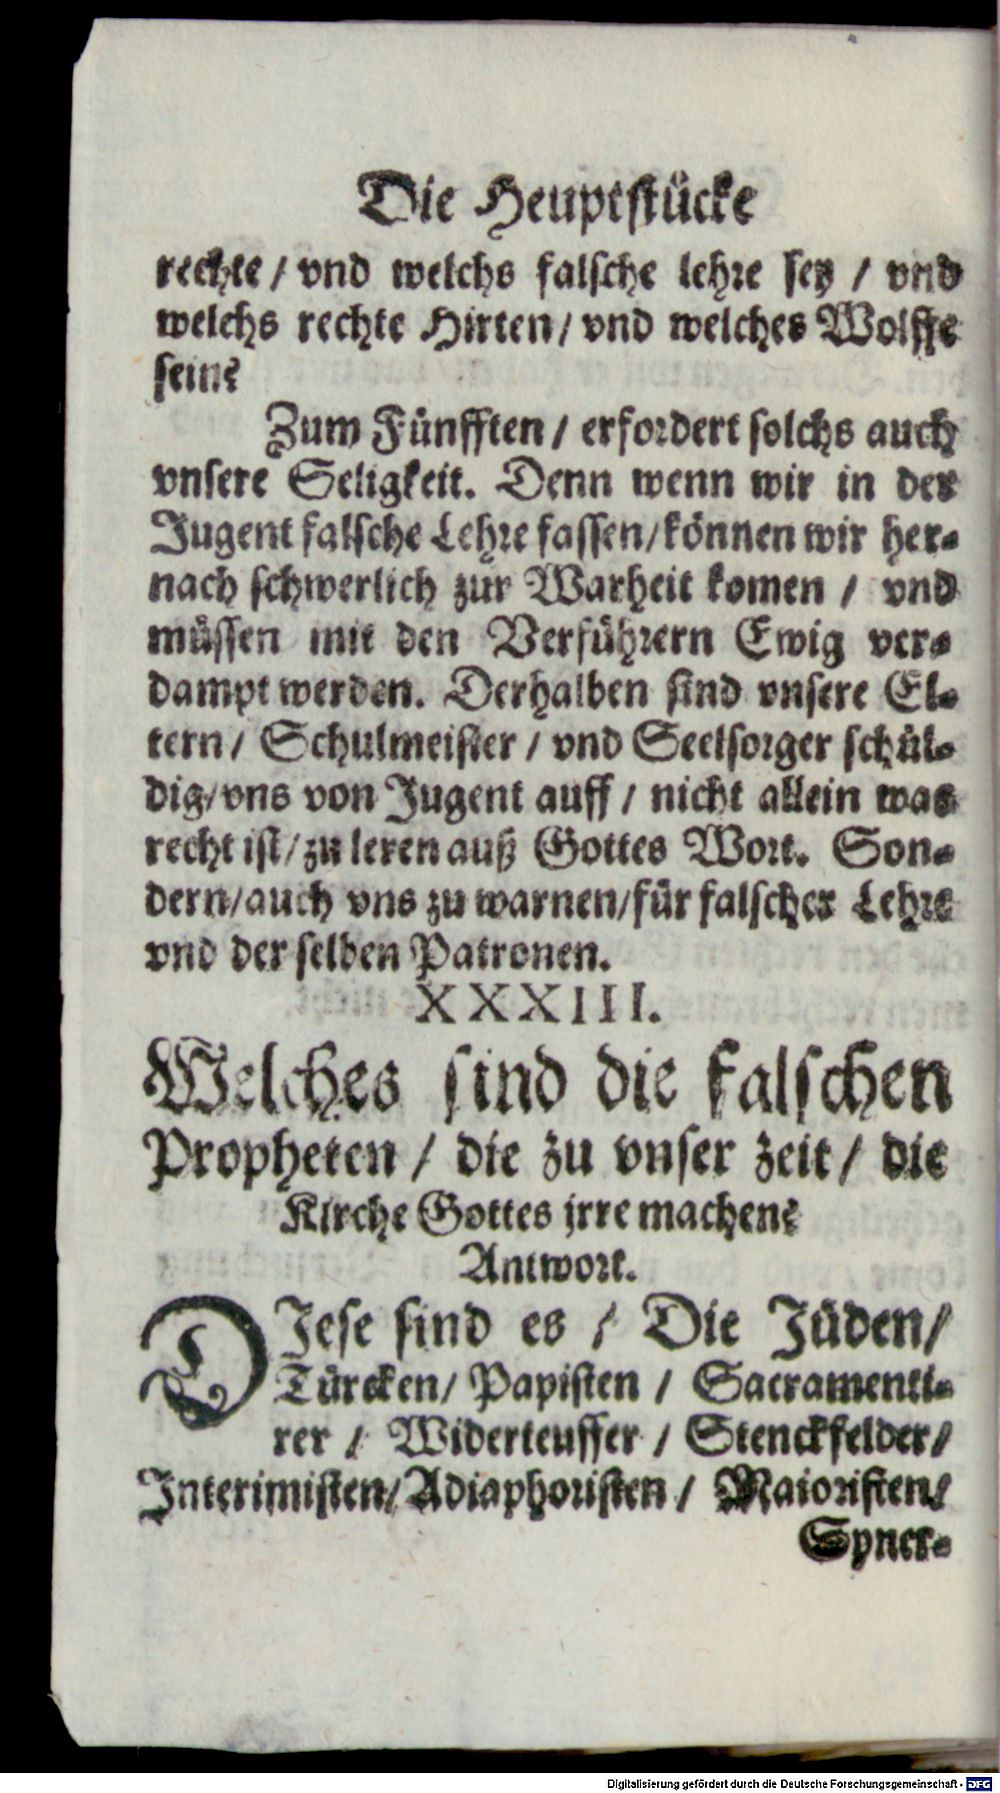 Die Heuptstücke
rechte / vnd welchs falsche lehre sey / vnd
welchs rechte Hirten / vnd welches Wolffe
sein?
Zum Fünfften / erfordert solchs auch
vnsere Seligkeit. Denn wenn wir in der
Jugent falsche Lehre fassen / können wir her-
nach schwerlich zur Warheit komen / vnd
müssen mit den Verführern Ewig ver-
dampt werden. Derhalben sind vnsere El-
tern / Schulmeister / vnd Seelsorger schül-
dig / vns von Jugent auff / nicht allein was
recht ist / zu leren auß Gottes Wort. Son-
dern / auch vns zu warnen / für falscher Lehre
vnd der selben Patronen.
XXXIII.
Welches sind die falschen
Propheten / die zu vnser zeit / die
Kirche Gottes jrre machen?
Antwort.
DJese sind es / Die Jüden /
Türcken / Papisten / Sacramenti-
rer / Widerteuffer / Stenckfelder /
Interimisten / Adiaphoristen / Maioristen /
Syner-
Digitalisierung gefördert durch die Deutsche Forschungsgemeinschaft - DFG